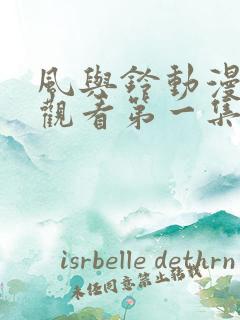 風與鈴動漫
觀看第一集
isrbelle dethrn
未任同意禁止轉載